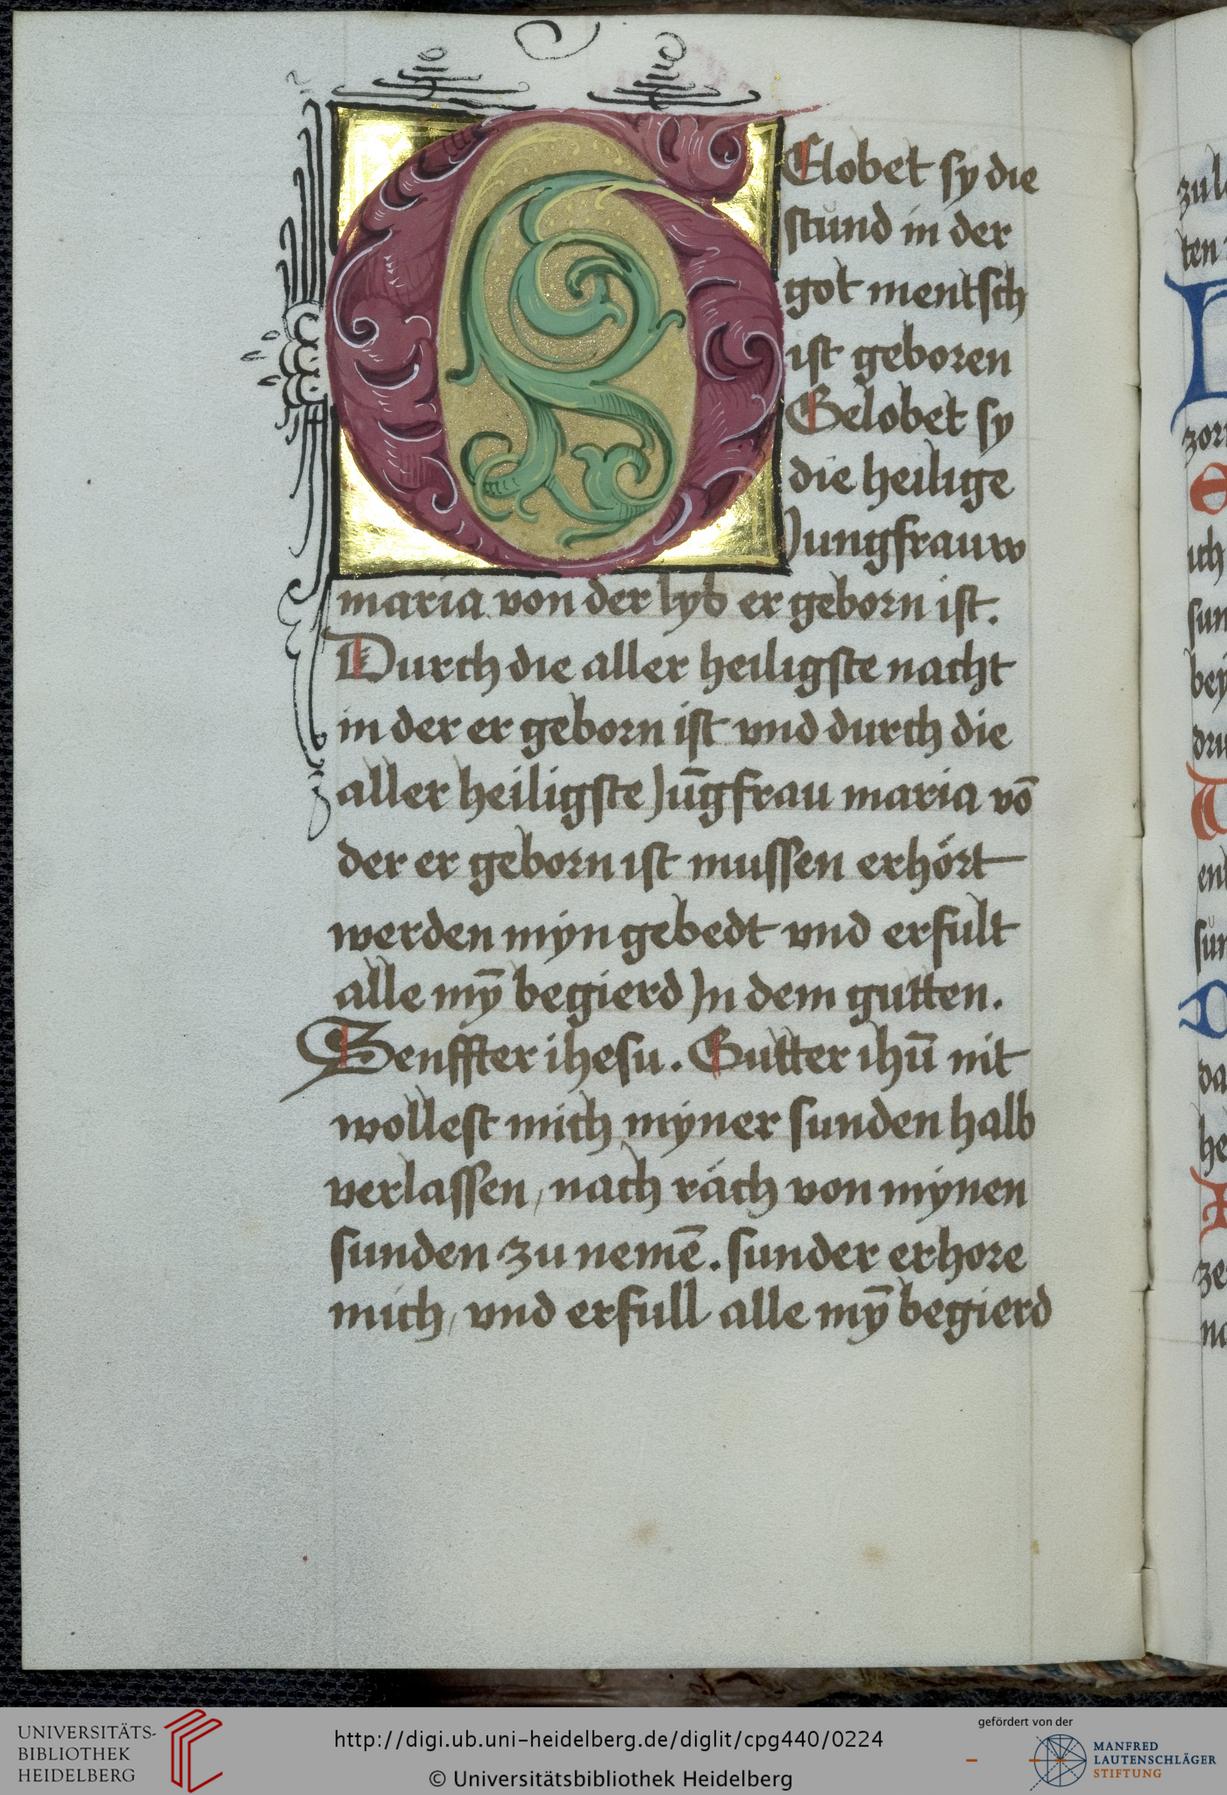 GElobet sy die
stund in der
got mentsch
ist geboren
Gelobet sy
die heilige
Jungfrauw
maria von der lyb er geborn ist.
Durch die aller heiligste nacht
in der er geborn ist vnd durch die
aller heiligste Jūgfrau maria vō
der er geborn ist mussen erhört
werden mÿn gebedt vnd erfult
alle mȳ begierd Jn dem gutten.
Senffter ihesu. Gutter ihū nit
wollest mich mÿner sunden halb
verlassen, nach räch von mÿnen
sunden zu nemē. sunder erhore
mich, vnd erfull alle mȳ begierd
zu
ten
zor
ich
sun
bey
dru
ent
sün
da
he
ze
na
UNIVERSITÄTS-
BIBLIOTHEK
HEIDELBERG
http://digi.ub.uni-heidelberg.de/diglit/cpg440/0224
© Universitätsbibliothek Heidelberg
gefördert von der
MANFRED
LAUTENSCHLÄGER
STIFTUNG